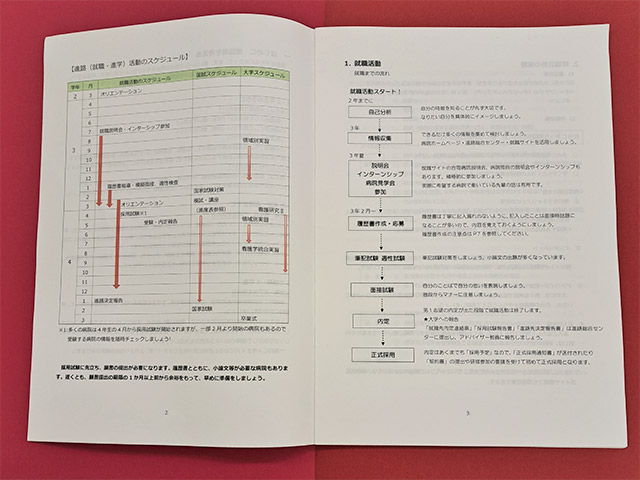 【進路（就職・進学）活動のスケジュール】
学年 月 就職活動のスケジュール 国試スケジュール 大学スケジュール
2 3 オリエンテーション
7 就職説明会・インターンシップ参加
8
9 領域別実習
3
10
11
12
1 履歴書指導・模擬面接、適性検査
2 国家試験対策
3 オリエンテーション 模試・講座
4 採用試験※1 （進度表参照） 看護研究Ⅱ
5 受験・内定報告 領域別実習
6
7 看護学統合実習
8
4
9
10
11
12
1 進路決定報告
2 国家試験
3 卒業式
※1:多くの病院は4年生の4月から採用試験が開始されますが、一部2月より開始の病院もあるので
受験する病院の情報を随時チェックしましょう！
採用試験に先立ち、願書の提出が必要になります。履歴書とともに、小論文等が必要な病院もありま
す。遅くとも、願書提出の締臨の1か月以上前から余裕をもって、早めに準備をしましょう。
2
1. 就職活動
就職までの流れ
就職活動スタート！
2年までに
自己分析
自分の特徴を知ることが先ず大切です。
なりたい自分を具体的にイメージしましょう。
3年
情報収集
できるだけ多くの情報を集めて検討しましょう。
病院ホームページ・進路総合センター・就職サイトを活用しましょう。
3年夏
説明会
インターンシップ
病院見学会
参加
就職サイトの合同病院説明会、病院独自の説明会やインターンシップも
あります。積極的に参加しましょう。
実際に希望する病院で働いている先輩の話は有用です。
3年2月―
履歴書作成・応募
履歴書は丁寧に記入漏れのないように。記入したことは面接時話題に
なることが多いので、内容を覚えておくようにしましょう。
履歴書作成の注意点はP7を参照してください。
筆記試験 適性試験
筆記試験対策をしましょう。小論文の出題が多くなっています。
面接試験
自分のことばで自分の思いを表現しましょう。
普段からマナーに注意しましょう。
内定
第1志望の内定が出た段階で就職活動は終了します。
★大学への報告
「就職先内定連絡票」「採用試験報告書」「進路先決定報告書」は進路総合セン
ターに提出し、アドバイザー教員に報告しましょう。
正式採用
内定はあくまでも「採用予定」なので、「正式採用通知書」が送付されたり
「契約書」の提出や研修参加の要請を受けて初めて正式採用となります。
3